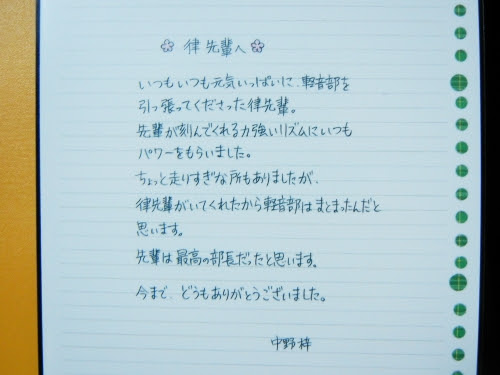 律先輩へ
いつもいつも元気いっぱいに、軽音部を
引っ張ってくださった律先輩。
先輩が刻んでくれる力強いリズムにいつも
パワーをもらいました。
ちょっと走りすぎな所もありましたが、
律先輩がいてくれたから軽音部はまとまったんだと
思います。
先輩は最高の部長だったと思います。
今まで、どうもありがとうございました。
中野梓